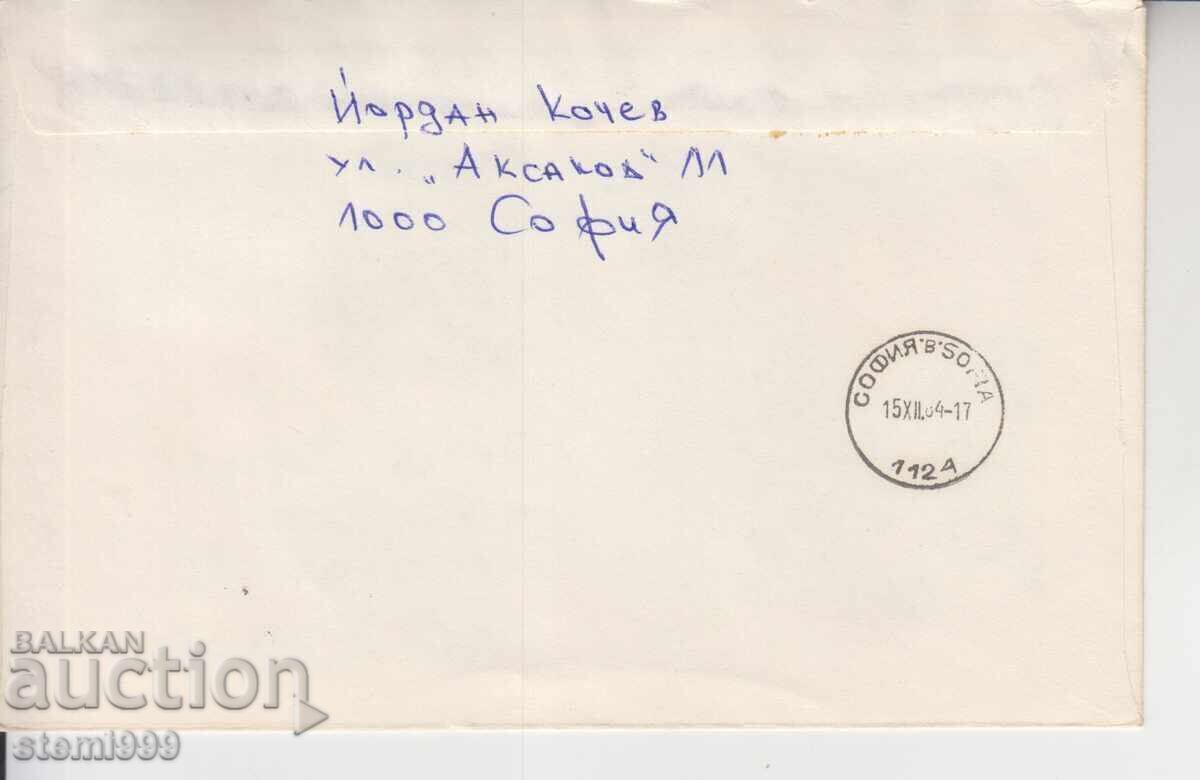 Йордан Кочев
ул. „Аксаков" 11
1000 София
СОФИЯ·В·SOFIA
15XII.84-17
1124
BALKAN
auction
stemi999